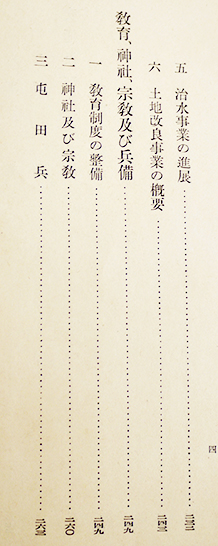 五 治水事業の進展……二三二
六 土地改良事業の概要……二四三
敎育、神社、宗敎及び兵備……二四九
一 敎育制度の整備……二四九
二 神社及び宗敎……二六〇
三 屯田兵……二六三
四